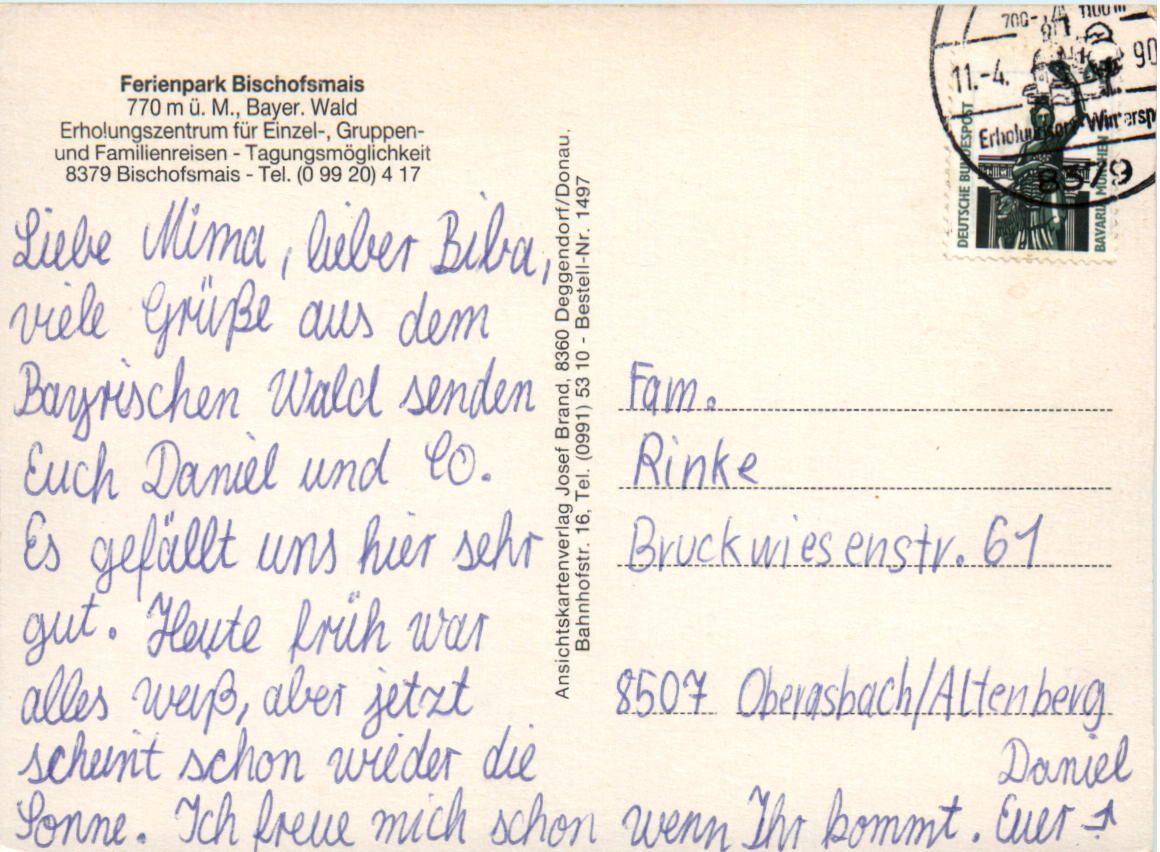 Ferienpark Bischofsmais
770 m ü. M., Bayer. Wald
Erholungszentrum für Einzel-, Gruppen-
und Familienreisen - Tagungsmöglichkeit
8379 Bischofsmais - Tel. (0 99 20) 4 17
Liebe Mima, lieber Biba,
viele Grüße aus dem
Bayrischen Wald senden
Euch Daniel und CO.
Es gefällt uns hier sehr
gut. Heute früh war
alles weiß, aber jetzt
scheint schon wieder die
Sonne. Ich freue mich schon wenn Ihr kommt. Euer
Daniel
Ansichtskartenverlag Josef Brand, 8360 Deggendorf/Donau,
Bahnhofstr. 16, Tel. (0991) 53 10 - Bestell-Nr. 1497
11.-4. 90
8379
DEUTSCHE BUNDESPOST
BAVARIA MÜNCHEN
Fam.
Rinke
Bruckwiesenstr. 61
8507 Oberasbach/Altenberg